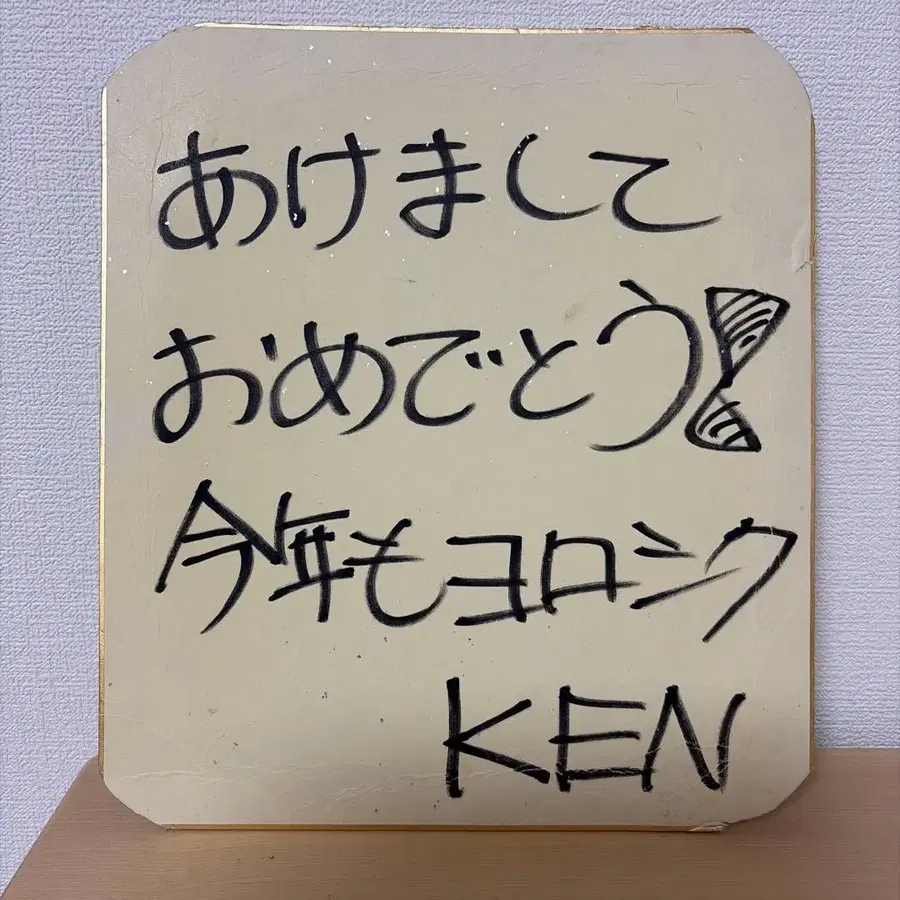 あけまして
おめでとう!
今年もヨロシク
KEN